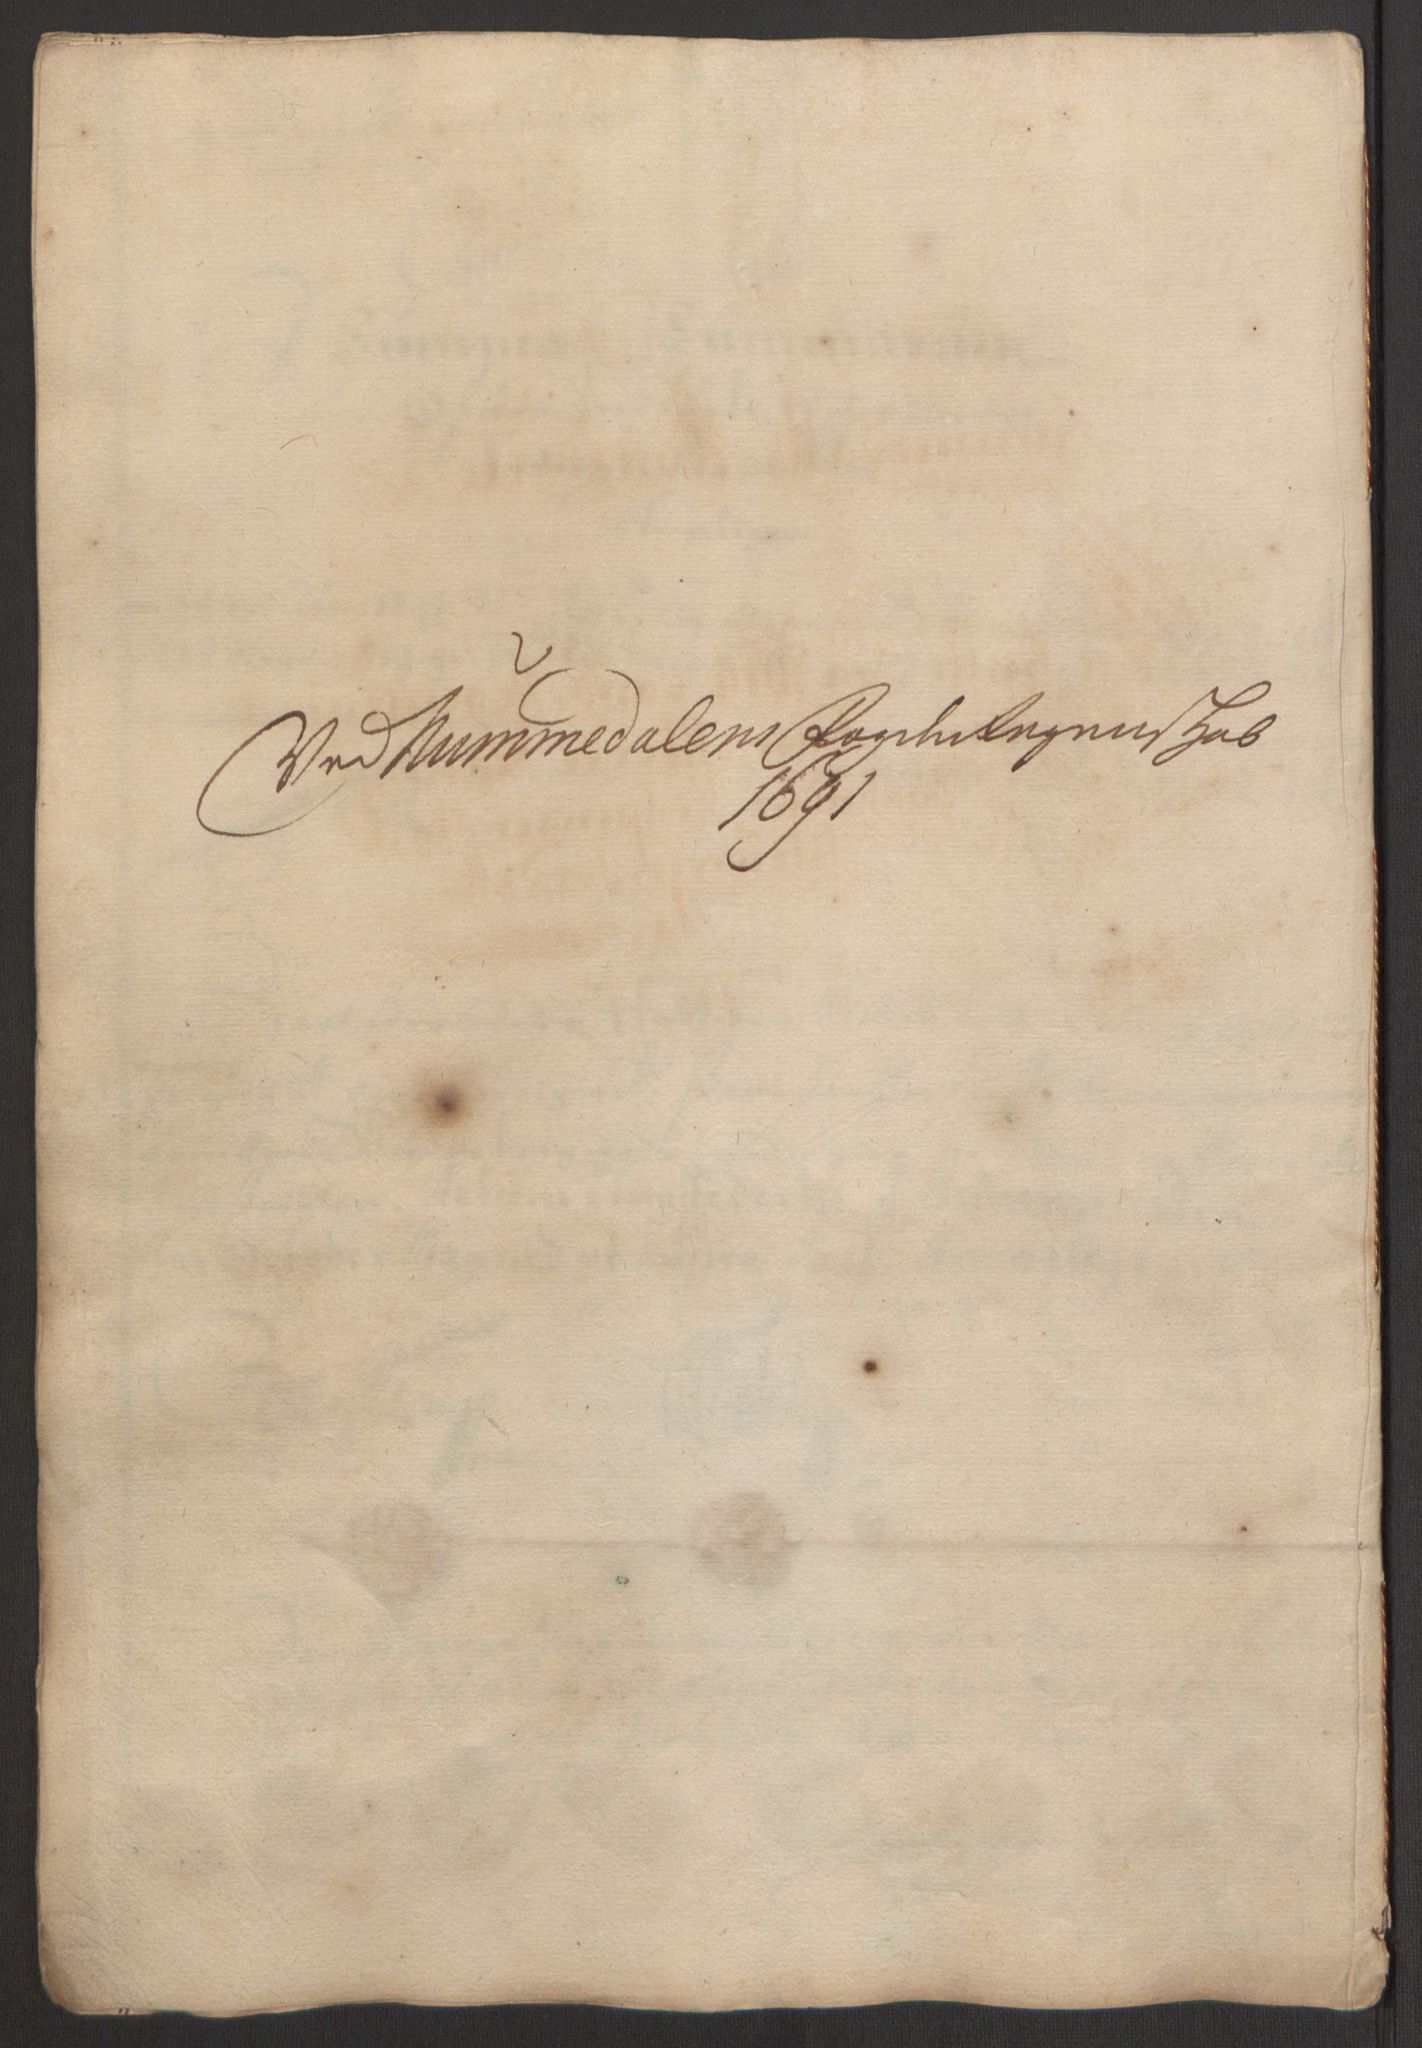 Ved Nummedalens Fogderiegnenschab
1691